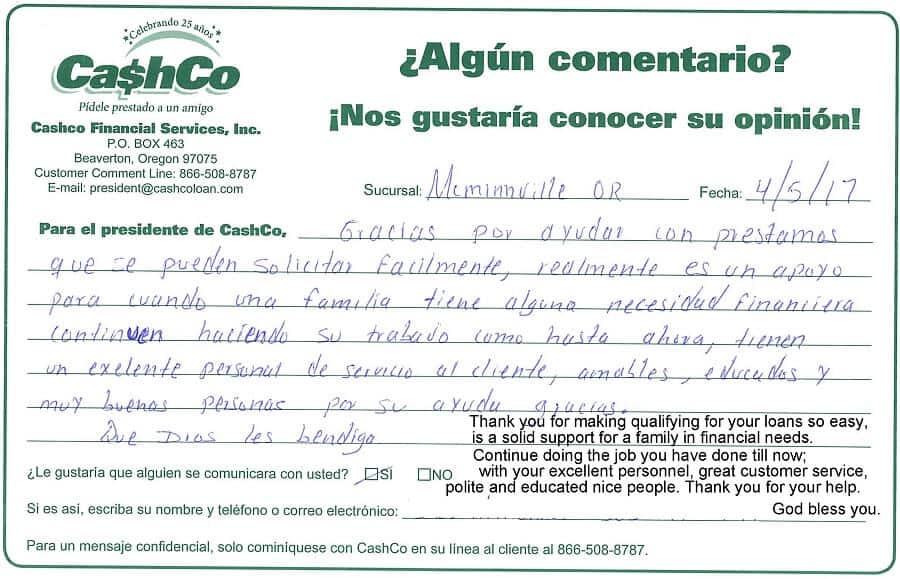 Celebrando 25 años
Ca$hCo
Pídele prestado a un amigo
Cashco Financial Services, Inc.
P.O. BOX 463
Beaverton, Oregon 97075
Customer Comment Line: 866-508-8787
E-mail: president@cashcoloan.com
¿Algún comentario?
¡Nos gustaría conocer su opinión!
Sucursal: Mcminnville OR Fecha: 4/5/17
Para el presidente de CashCo, Gracias por ayudar con prestamos
que se pueden solicitar facilmente, realmente es un apoyo
para cuando una familia tiene alguna necesidad financiera
continuen haciendo su trabajo como hasta ahora, tienen
un exelente personal de servicio al cliente, amables, educados y
muy buenas personas por su ayuda gracias.
Que Dios les bendiga
Thank you for making qualifying for your loans so easy,
is a solid support for a family in financial needs.
Continue doing the job you have done till now;
with your excellent personnel, great customer service,
polite and educated nice people. Thank you for your help.
God bless you.
¿Le gustaria que alguien se comunicara con usted? SÍ NO
Si es así, escriba su nombre y teléfono o correo electrónico:
Para un mensaje confidencial, solo cominiquese con CashCo en su línea al cliente al 866-508-8787.